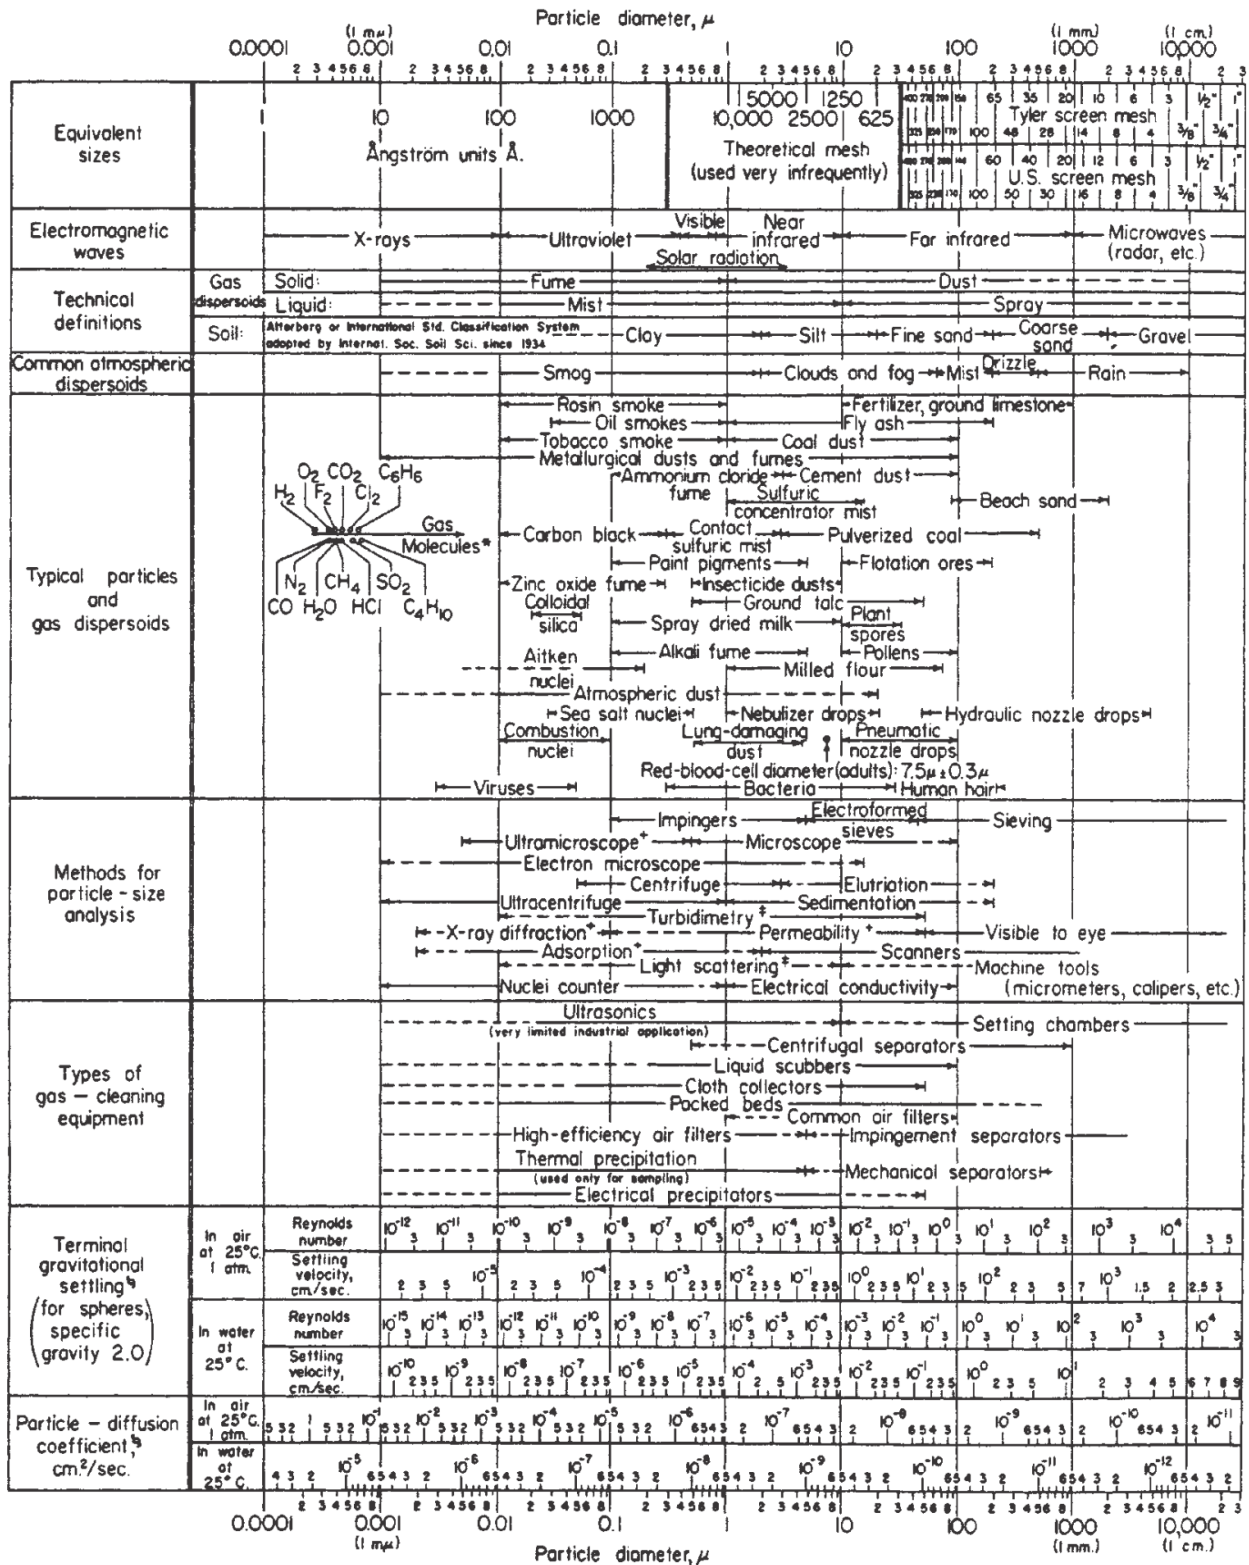 Particle diameter, μ
(1 mμ) (1 mm.) (1 cm.)
0.0001 0.001 0.01 0.1 1 10 100 1000 10,000
2 3 4 5 6 8 2 3 4 5 6 8 2 3 4 5 6 8 2 3 4 5 6 8 2 3 4 5 6 8 2 3 4 5 6 8 2 3 4 5 6 8 2 3 4 5 6 8 2 3
Equivalent sizes
1 10 100 1000
Ångström units Å.
5000 1250
10,000 2500 625
Theoretical mesh
(used very infrequently)
400 270 200 150 65 35 20 10 6 3 1/2" 1"
Tyler screen mesh
325 250 170 100 48 28 14 8 4 3/8" 3/4"
400 270 200 140 60 40 20 12 6 3 1/2" 1"
U.S. screen mesh
325 230 170 100 50 30 16 8 4 3/8" 3/4"
Electromagnetic waves
X-rays
Ultraviolet
Visible
Near infrared
Far infrared
Microwaves
(radar, etc.)
Solar radiation
Technical definitions
Gas dispersoids
Solid:
Fume
Dust
Liquid:
Mist
Spray
Soil:
Atterberg or International Std. Classification System
adopted by Internat. Soc. Soil Sci. since 1934
Clay
Silt
Fine sand
Coarse sand
Gravel
Common atmospheric dispersoids
Smog
Clouds and fog
Mist
Drizzle
Rain
Typical particles and gas dispersoids
Rosin smoke
Fertilizer, ground limestone
Oil smokes
Fly ash
Tobacco smoke
Coal dust
Metallurgical dusts and fumes
Ammonium cloride fume
Cement dust
Sulfuric concentrator mist
Beach sand
O2 CO2 C6H6
H2 F2 Cl2
Gas Molecules*
N2 CH4 SO2
CO H2O HCl C4H10
Carbon black
Contact sulfuric mist
Pulverized coal
Paint pigments
Flotation ores
Zinc oxide fume
Insecticide dusts
Colloidal silica
Ground talc
Spray dried milk
Plant spores
Alkali fume
Pollens
Aitken nuclei
Milled flour
Atmospheric dust
Sea salt nuclei
Nebulizer drops
Hydraulic nozzle drops
Combustion nuclei
Lung-damaging dust
Pneumatic nozzle drops
Red-blood-cell diameter (adults): 7.5μ ± 0.3μ
Viruses
Bacteria
Human hair
Methods for particle-size analysis
Impingers
Electroformed sieves
Sieving
Ultramicroscope+
Microscope
Electron microscope
Centrifuge
Elutriation
Ultracentrifuge
Sedimentation
Turbidimetry‡
X-ray diffraction+
Permeability+
Visible to eye
Adsorption+
Scanners
Light scattering‡
Machine tools
(micrometers, calipers, etc.)
Nuclei counter
Electrical conductivity
Types of gas-cleaning equipment
Ultrasonics
(very limited industrial application)
Setting chambers
Centrifugal separators
Liquid scubbers
Cloth collectors
Packed beds
Common air filters
High-efficiency air filters
Impingement separators
Thermal precipitation
(used only for sampling)
Mechanical separators
Electrical precipitators
Terminal gravitational settling
(for spheres, specific gravity 2.0)
In air at 25°C. 1 atm.
Reynolds number
10-12 10-11 10-10 10-9 10-8 10-7 10-6 10-5 10-4 10-3 10-2 10-1 100 101 102 103 104
Settling velocity, cm/sec.
10-5 10-4 10-3 10-2 10-1 100 101 102 103
In water at 25°C.
Reynolds number
10-15 10-14 10-13 10-12 10-11 10-10 10-9 10-8 10-7 10-6 10-5 10-4 10-3 10-2 10-1 100 101 102 103 104
Settling velocity, cm/sec.
10-10 10-9 10-8 10-7 10-6 10-5 10-4 10-3 10-2 10-1 100 101
Particle-diffusion coefficient, cm.2/sec.
In air at 25°C. 1 atm.
1 10-1 10-2 10-3 10-4 10-5 10-6 10-7 10-8 10-9 10-10 10-11
In water at 25°C.
10-5 10-6 10-7 10-8 10-9 10-10 10-11 10-12
2 3 4 5 6 8 2 3 4 5 6 8 2 3 4 5 6 8 2 3 4 5 6 8 2 3 4 5 6 8 2 3 4 5 6 8 2 3 4 5 6 8 2 3 4 5 6 8 2 3
0.0001 0.001 0.01 0.1 1 10 100 1000 10,000
(1 mμ) (1 mm.) (1 cm.)
Particle diameter, μ